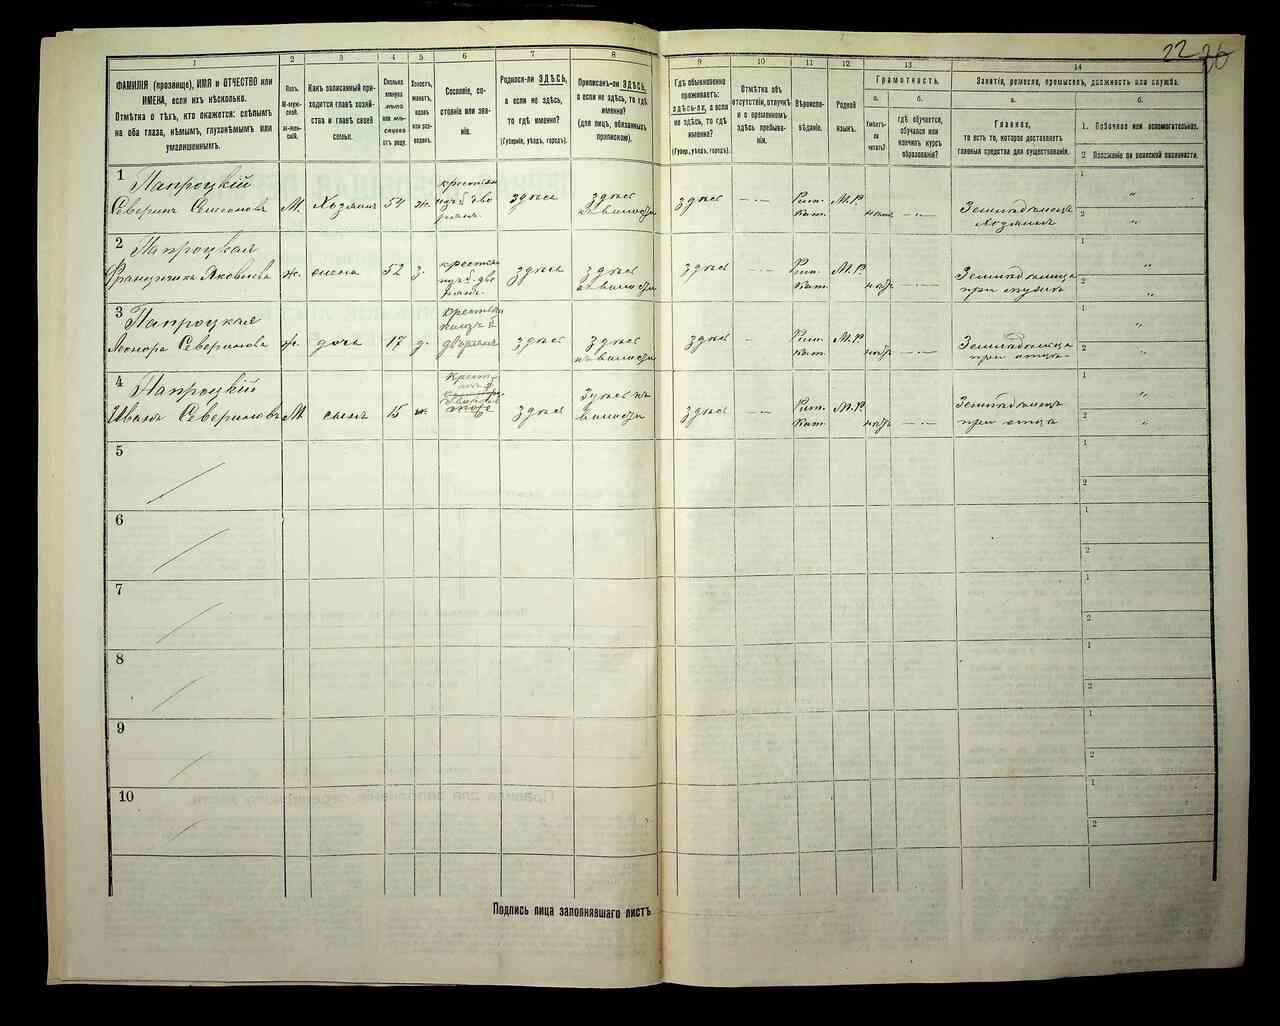 22 26
1 2 3 4 5 6 7 8 9 10 11 12 13 14
ФАМИЛІЯ (прозвище), ИМЯ и ОТЧЕСТВО или
ИМЕНА, если ихъ нѣсколько.
Отмѣтка о тѣхъ, кто окажется: слѣпымъ
на оба глаза, нѣмымъ, глухонѣмымъ или
умалишеннымъ.
Полъ.
М-муж-
ской.
Ж-жен-
скій.
Какъ записанный при-
ходится главѣ хозяй-
ства и главѣ своей
семьи.
Сколько
минуло
лѣтъ
или мѣ-
сяцевъ
отъ роду.
Холостъ,
женатъ,
вдовъ
или раз-
веденъ.
Сословіе, со-
стояніе или зва-
ніе.
Родился-ли ЗДѢСЬ,
а если не здѣсь,
то гдѣ именно?
(Губернія, уѣздъ, городъ).
Приписанъ-ли ЗДѢСЬ,
а если не здѣсь, то гдѣ
именно?
(для лицъ, обязанныхъ
припискою).
Гдѣ обыкновенно
проживаетъ:
здѣсь-ли, а если
не здѣсь, то гдѣ
именно?
(Губерн., уѣздъ, городъ).
Отмѣтка объ
отсутствіи, отлучкѣ
и о временномъ
здѣсь пребыва-
ніи.
Вѣроиспо-
вѣданіе.
Родной
языкъ.
Грамотность.
а.
Умѣетъ-
ли
читать?
б.
гдѣ обучается,
обучался или
кончилъ курсъ
образованія?
Занятія, ремесло, промыселъ, должность или служба.
а.
Главное,
то есть то, которое доставляетъ
главныя средства для существованія.
б.
1. Побочное или вспомогательное.
2 Положеніе по воинской повинности.
1 Папроцкій
Северинъ Семеоновъ М. Хозяинъ 54 ж. крестьян изъ дворянъ здѣсь здѣсь въ волости здѣсь — Рим. Кат. М.Р. Земледѣлецъ хозяинъ
2 Папроцкая
Францишка Яковлева ж. жена 52 з. здѣсь здѣсь въ волости здѣсь — Рим. Кат. М.Р. Земледѣлица при мужѣ
3 Папроцкая
Леонора Северинова ж. дочь 17 д. здѣсь здѣсь въ волости здѣсь — Рим. Кат. М.Р. Земледѣлица при отцѣ
4 Папроцкій
Иванъ Севериновъ М сынъ 15 здѣсь здѣсь въ волости здѣсь — Рим. Кат. М.Р. Земледѣлецъ при отцѣ
5
6
7
8
9
10
Подпись лица заполнявшаго листъ